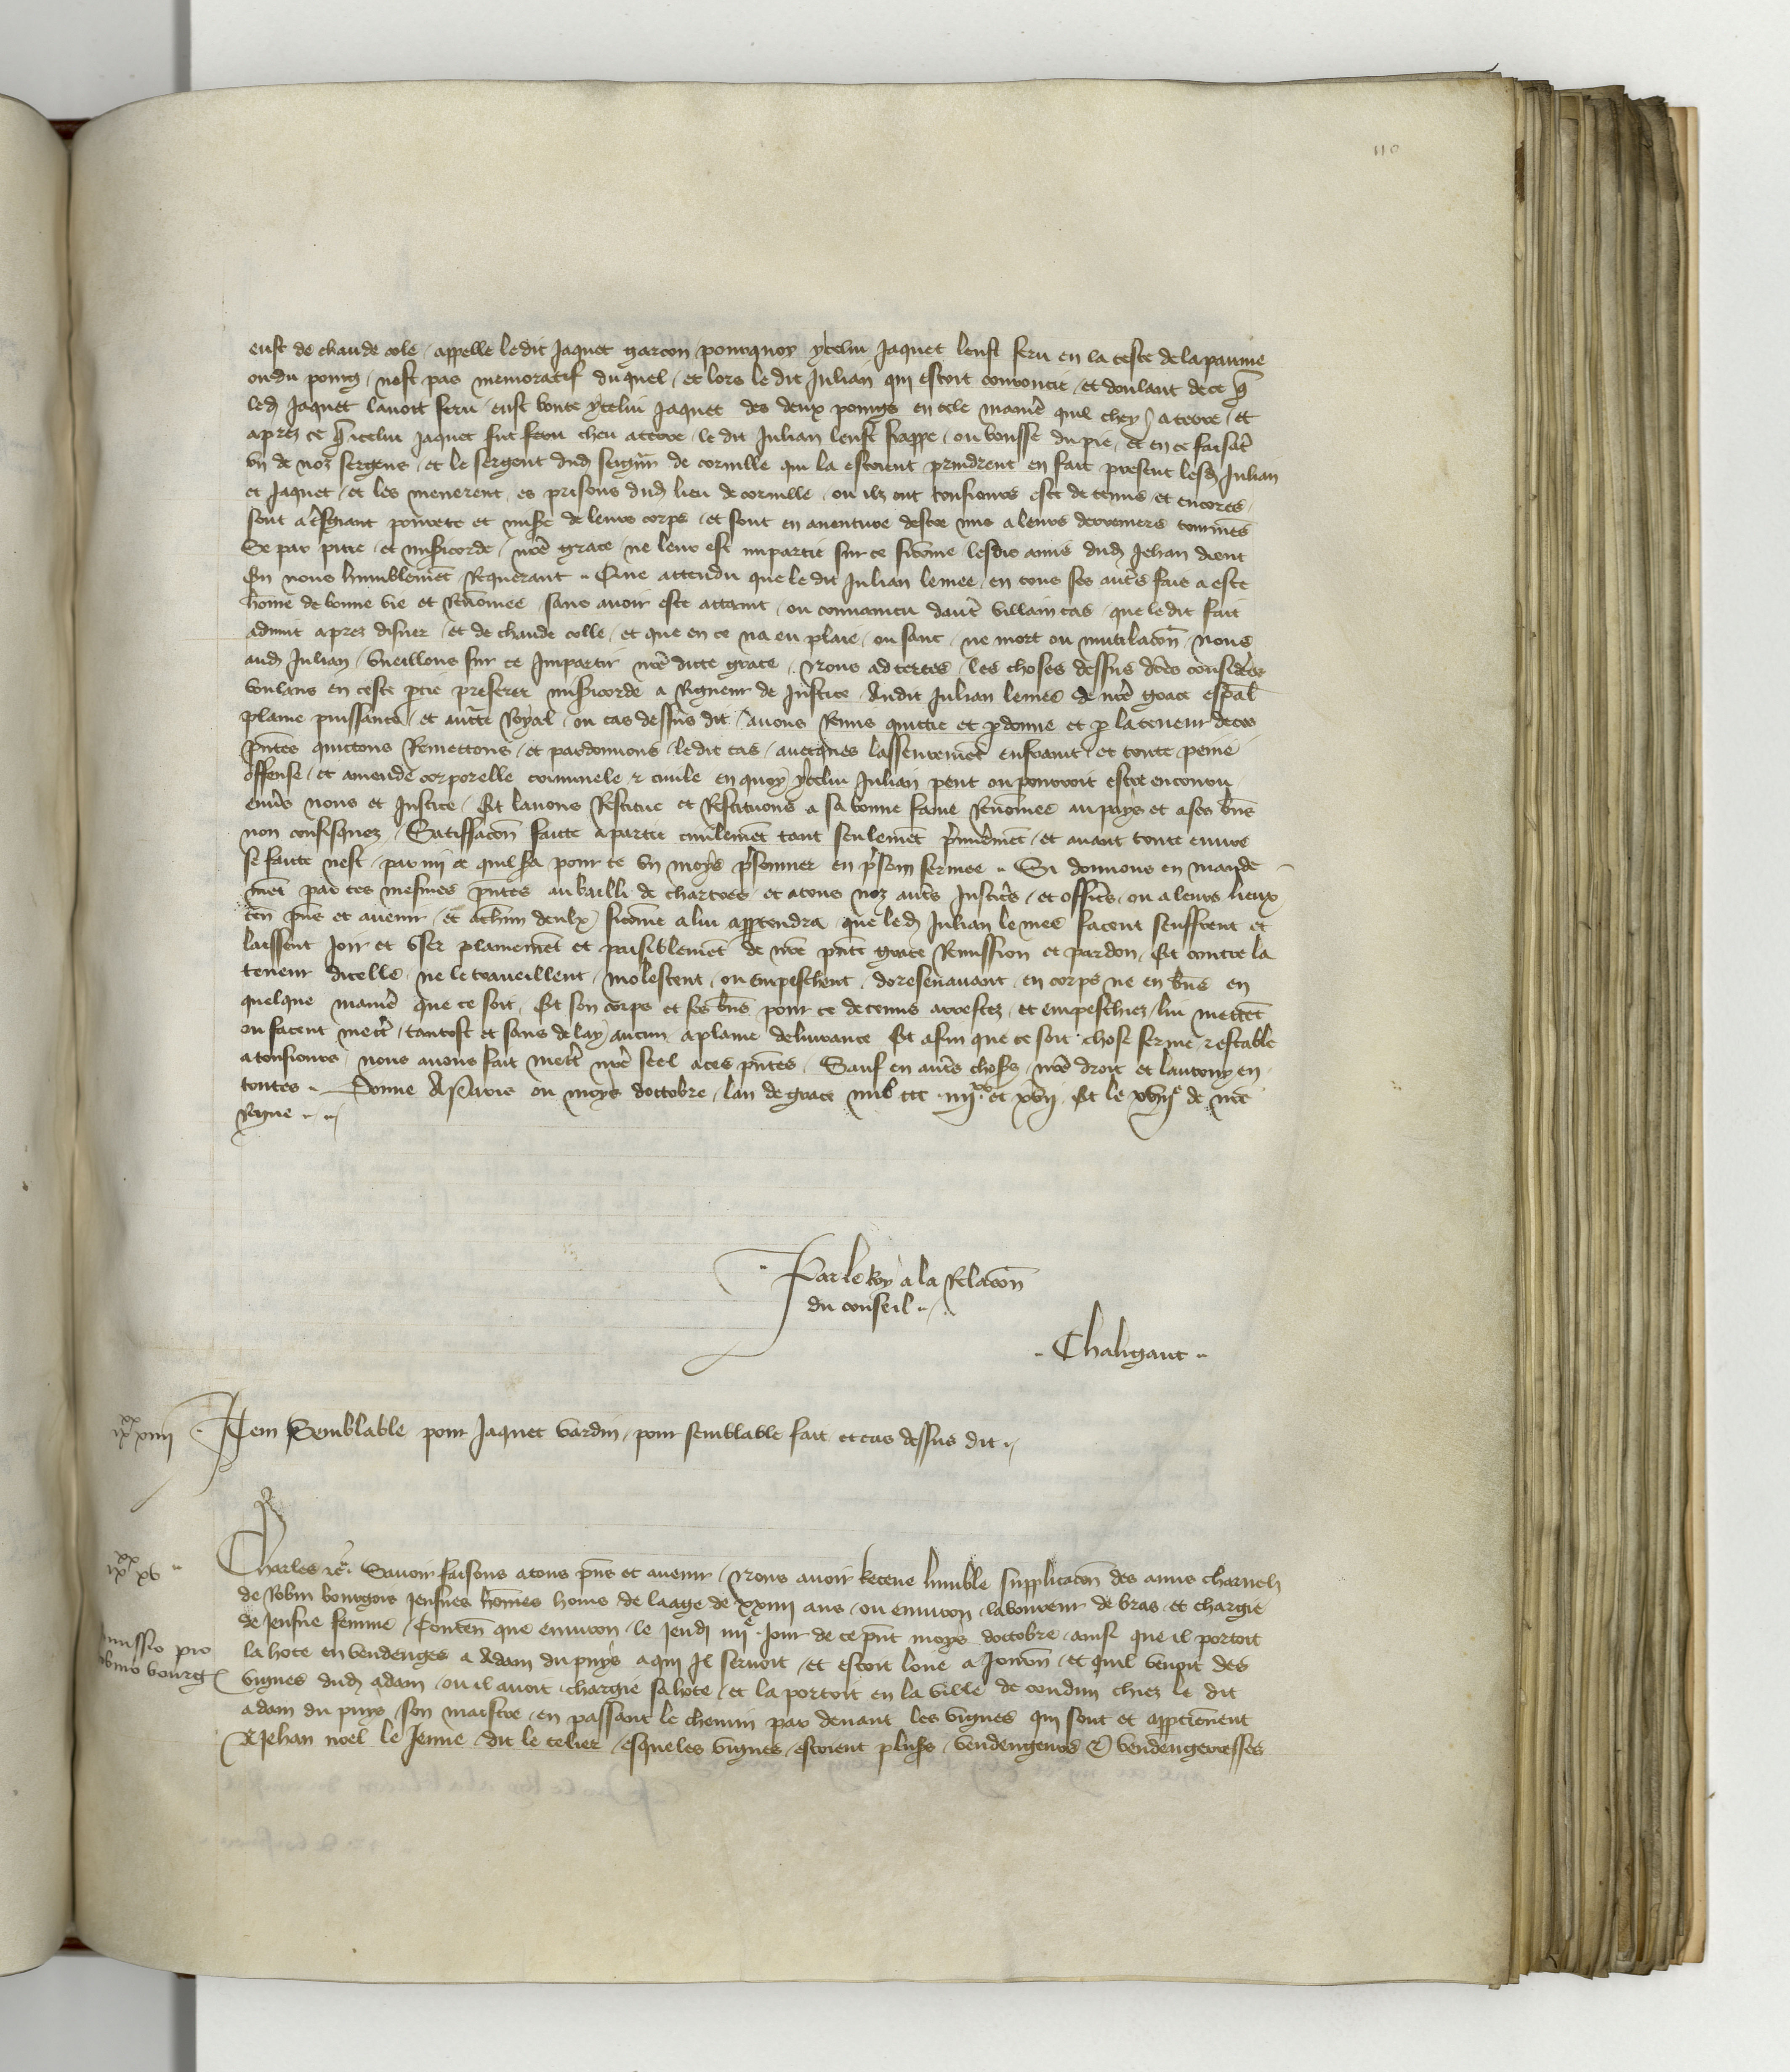 110
eust de chaude cole appelle ledit Jaquet garcon pourquoy ycelui Jaquet leust feru en la teste de la paume
ou du poing / nest pas memoratif duquel / et lors le dit Julian qui estoit courroucie / et doulant de ce q̃
led Jaquet lavoit feru / eust boute ycelui Jaquet des deux poings en tele maniẽ quil chey a terre / et
aprez ce q̃ icelui Jaquet fut cheu a terre / le dit Julian leust frappe / ou bousse du pie / et en ce faisãt
un de noz sergens / et le sergent dud seigneur de corville qui la estoient prindrent en fait present lesd Julian
et Jaquet / et les menerent es prisons dud lieu de corville / ou ilz ont tousiours este detenus et encores
sont a grant povrete et misẽ de leurs corps / et sont en aventure destre mis a leurs derreniers tourmẽs
Se par pitie / et misẽicorde / nr̃e grace / ne leur est impartie sur ce sicõme / lesdiz amis dud Jehan dient
En nous humblemẽt Requerant .. Que attendu que le dit Julian lemee / en tous ses autr̃es fais a este
hõme de bonne vie et Renõmee / sans avoir este attaint / ou convaincu daut̃ villain cas / que le dit fait
advint aprez disner / et de chaude colle / et que en ce na eu plaie / ou sanc / ne mort ou mutilacõn / Nous
aud Julian / vueillons sur ce Impartir nr̃e dicte grace / Nous adcertes / les choses dessus dc̃es considerẽes
voulans en ceste ptie preferer misẽicorde a Rigueur de Justice / Audit Julian lemee de nr̃e grace esp̃al
plaine puissance / et auct̃e Royal / ou cas dessus dit / avons Remis quictie et pdonne et p la teneur de ces
pñtes quictons Remettons / et pardonnons / le dit cas / avecques lassentemẽt ensuivant / et toute peine
offense / et amende corporelle criminele & civile en quoy ycelui Julian peut ou pourroit estre encouru
envers nous et Justice / Et lavons Restitue et Restituons a sa bonne fame Renõmee au pays et a ses biẽs
non confisquez / Satisfacõn faicte a partie civilemẽt tant seulemẽt premieremẽt / et avant toute euvre
se faicte nest / parmi ce quil sẽra pour ce un moys prisonnier en prison fermee .. Si donnons en mande
mẽt par ces mesmes pñtes au bailli de chartres / et a tous noz autr̃es Justiciers / et officiers / ou a leurs lieux
ten̄ pñs et avenir / et a chun deulx / sicõme a lui appartendra / que led Julian le mee facent seuffrent et
laissent Joir et user plainemẽt et paisiblemẽt de nr̃e pñte grace Remission et pardon / Et contre la
teneur dicelle / ne le traveillent / molestent / ou empeschent / doresenavant / en corps ne en biẽs en
quelque maniẽ que ce soit / Et son corps et ses biẽs pour ce detenus arrestez / et empeschiez / lui mettẽt
ou facent mettre / tantost et sans delay aucun a plaine delivrance Et afin que ce soit chose ferme & estable
a tousiours / nous avons fait mettre nr̃e seel a ces pñtes / Sauf en autr̃es choses nr̃e droit et lautruy en
toutes .. Donne A Paris ou moys doctobre / lan de grace mil ccc iiii xx et xvii / Et le xviiie de nr̃e
Regne ..
Par le Roy a la Relacõn
du conseil ..
Chaligaut ..
ix xx xiiii Item Semblable pour Jaquet bardin / pour semblable fait et cas dessus dit ..
ix xx xv Charles &c̃. Savoir faisons a tous pñs et avenir / Nous avoir Receue humble supplicacõn des amis charnelz
de Robin bourgois Jeusnes hõmes homs de laage de xxiiii ans / ou environ / laboureur de bras / et chargie
de Jeusne femme / Conteñ que environ / le Jeudi iiiie Jour de ce pñt moys doctobre / ainsi que il portoit
missio pro
bino bourg
la hote en vendenges a Adam du puys a qui Il servoit / et estoit loue a Journ̄ / et quil venoit des
vignes dud adam / ou il avoit chargie sa hote / et la portoit en la ville de condun chiez le dit
adam du puys / son maistre / en passant le chemin par devant les vignes qui sont et apptienent
A Jehan noel le Jeune / dit le telier / esqueles vignes / estoient plusẽs / vendengeurs & vendengerresses